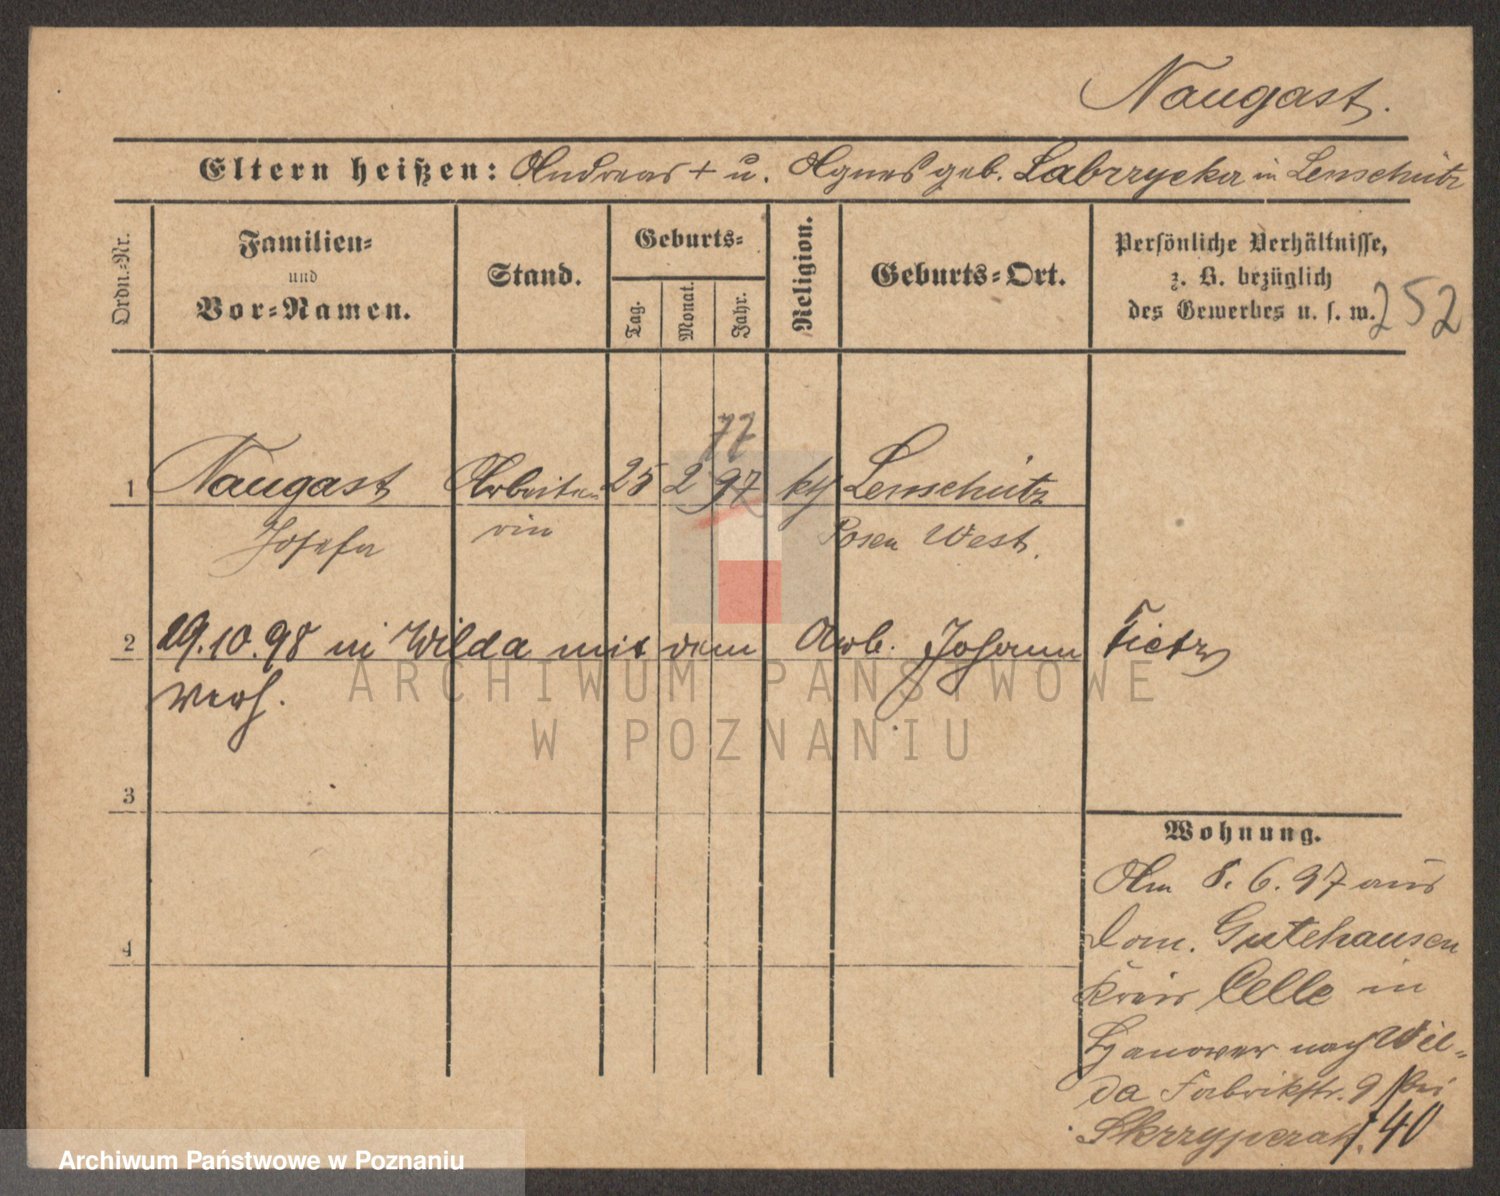 Naugast.
Eltern heißen: Andreas + u. Agnes geb. Labrzycka in Lenschütz
Ordn.-Nr.
Familien- und Vor-Namen.
Stand.
Geburts-
Tag.
Monat.
Jahr.
Religion.
Geburts-Ort.
Persönliche Verhältnisse,
z. B. bezüglich
des Gewerbes u. s. w.
252
77
1 Naugast Arbeiterin 25 2 97 kth Lenschütz
Josefa Posen West.
2 29.10.98 in Wilda mit dem Arb. Johann Tietz
verh.
3
4
Wohnung.
Am 8. 6. 97 aus
Dom. Gutehausen
Kreis Celle in
Hanower nach Wil-
da Fabrikstr. 9 bei
Skrzypczak 40
ARCHIWUM PAŃSTWOWE
W POZNANIU
Archiwum Państwowe w Poznaniu